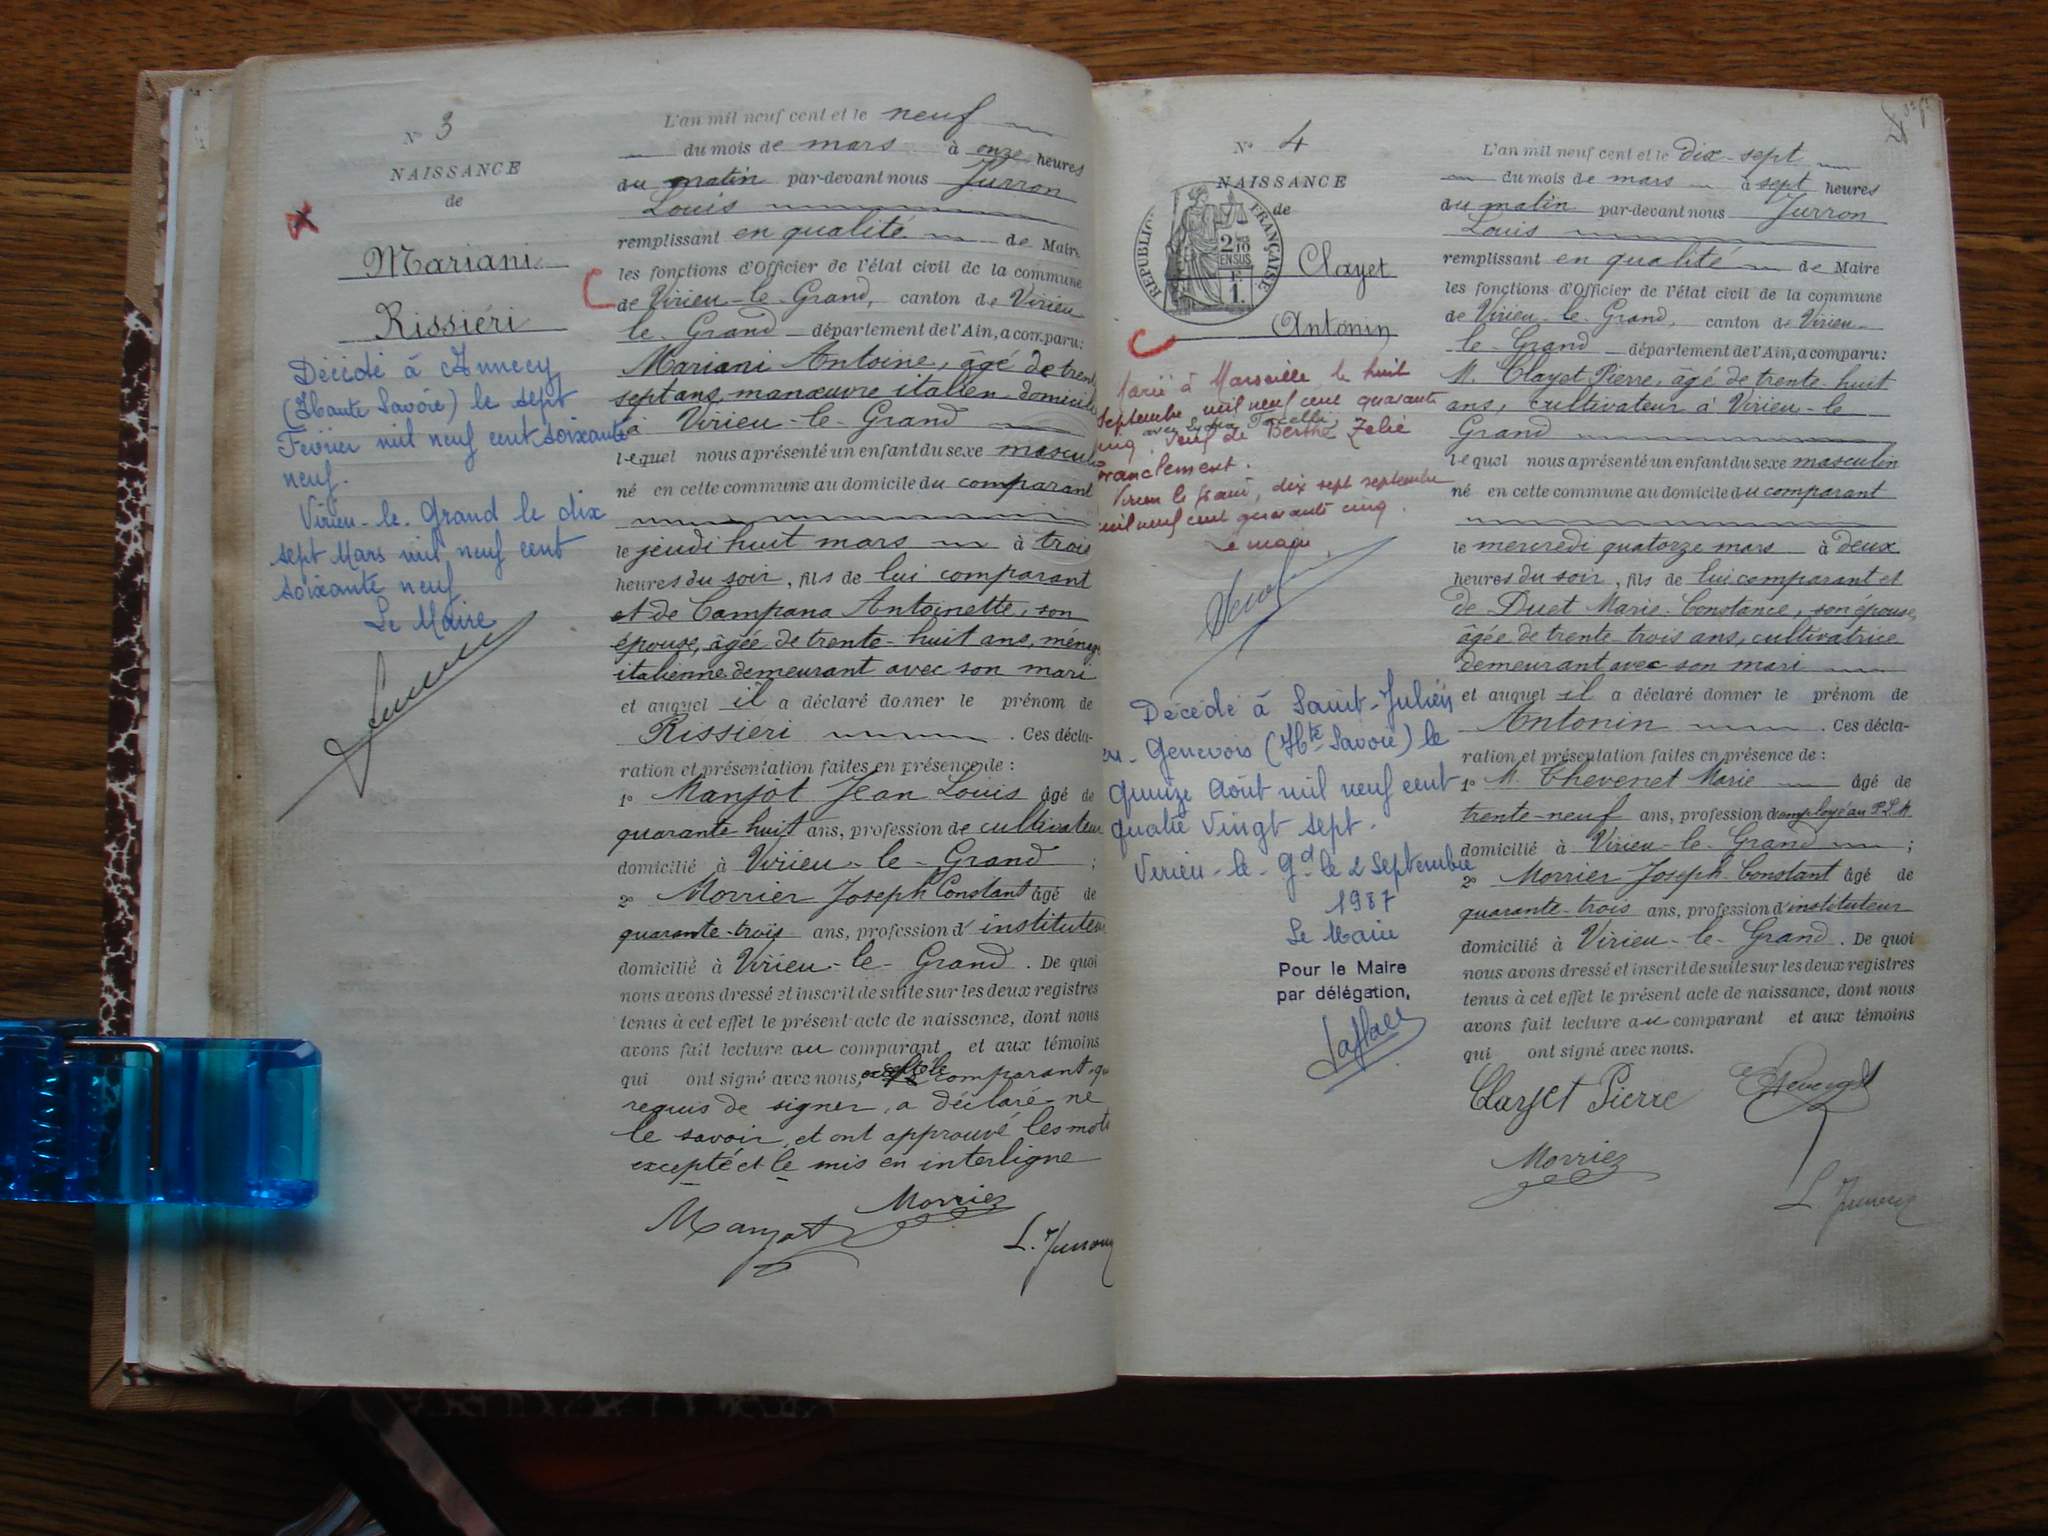 N° 3
NAISSANCE
de
Mariani
Rissiéri
Décédé à Annecy
(Haute Savoie) le sept
Février mil neuf cent soixante
neuf.
Virieu-le-Grand le dix
sept Mars mil neuf cent
soixante neuf
Le Maire
L'an mil neuf cent et le neuf
du mois de mars à onze heures
du matin par-devant nous Jurron
Louis
remplissant en qualité de Maire
les fonctions d'Officier de l'état civil de la commune
de Virieu-le-Grand, canton de Virieu
le Grand département de l'Ain, a comparu:
Mariani Antoine, âgé de trente
sept ans, manœuvre italien domicilié
à Virieu-le-Grand
lequel nous a présenté un enfant du sexe masculin
né en cette commune au domicile du comparant
le jeudi huit mars à trois
heures du soir, fils de lui comparant
et de Campana Antoinette, son
épouse, âgée de trente-huit ans, ménag
italienne demeurant avec son mari
et auquel il a déclaré donner le prénom de
Rissiéri . Ces décla-
ration et présentation faites en présence de :
1° Manjot Jean Louis âgé de
quarante huit ans, profession de cultivateur
domicilié à Virieu-le-Grand ;
2° Morrier Joseph Constant âgé de
quarante-trois ans, profession d'instituteur
domicilié à Virieu-le-Grand . De quoi
nous avons dressé et inscrit de suite sur les deux registres
tenus à cet effet le présent acte de naissance, dont nous
avons fait lecture au comparant et aux témoins
qui ont signé avec nous, excepté le comparant, qui
requis de signer, a déclaré ne
le savoir, et ont approuvé les mots
excepté et le mis en interligne
Manjot Morrier
L. Jurron
N° 4
NAISSANCE
de
RÉPUBLIQUE FRANÇAISE
2/10
EN SUS
1.
Clayet
Antonin
Marié à Marseille le huit
septembre mil neuf cent quarante
cinq avec Lydia Torcelli, veuf de Berthe Zélie
Franclement.
Virieu le Grand, dix sept septembre
mil neuf cent quarante cinq.
Le maire
Décédé à Saint-Julien
en-Genevois (Hte Savoie) le
Quinze Août mil neuf cent
quatre vingt sept.
Virieu-le-Gd le 2 Septembre
1987
Le Maire
Pour le Maire
par délégation,
L'an mil neuf cent et le dix-sept
du mois de mars à sept heures
du matin par-devant nous Jurron
Louis
remplissant en qualité de Maire
les fonctions d'Officier de l'état civil de la commune
de Virieu-le-Grand, canton de Virieu-
le Grand département de l'Ain, a comparu:
M. Clayet Pierre, âgé de trente-huit
ans, cultivateur à Virieu-le
Grand
lequel nous a présenté un enfant du sexe masculin
né en cette commune au domicile du comparant
le mercredi quatorze mars à deux
heures du soir, fils de lui comparant et
de Duet Marie-Constance, son épouse,
âgée de trente-trois ans, cultivatrice
demeurant avec son mari
et auquel il a déclaré donner le prénom de
Antonin . Ces décla-
ration et présentation faites en présence de :
1° M. Thevenet Marie âgé de
trente-neuf ans, profession d'employé au P.L.M
domicilié à Virieu-le-Grand ;
2° Morrier Joseph-Constant âgé de
quarante-trois ans, profession d'instituteur
domicilié à Virieu-le-Grand . De quoi
nous avons dressé et inscrit de suite sur les deux registres
tenus à cet effet le présent acte de naissance, dont nous
avons fait lecture au comparant et aux témoins
qui ont signé avec nous.
Clayet Pierre
Morrier
L Jurron